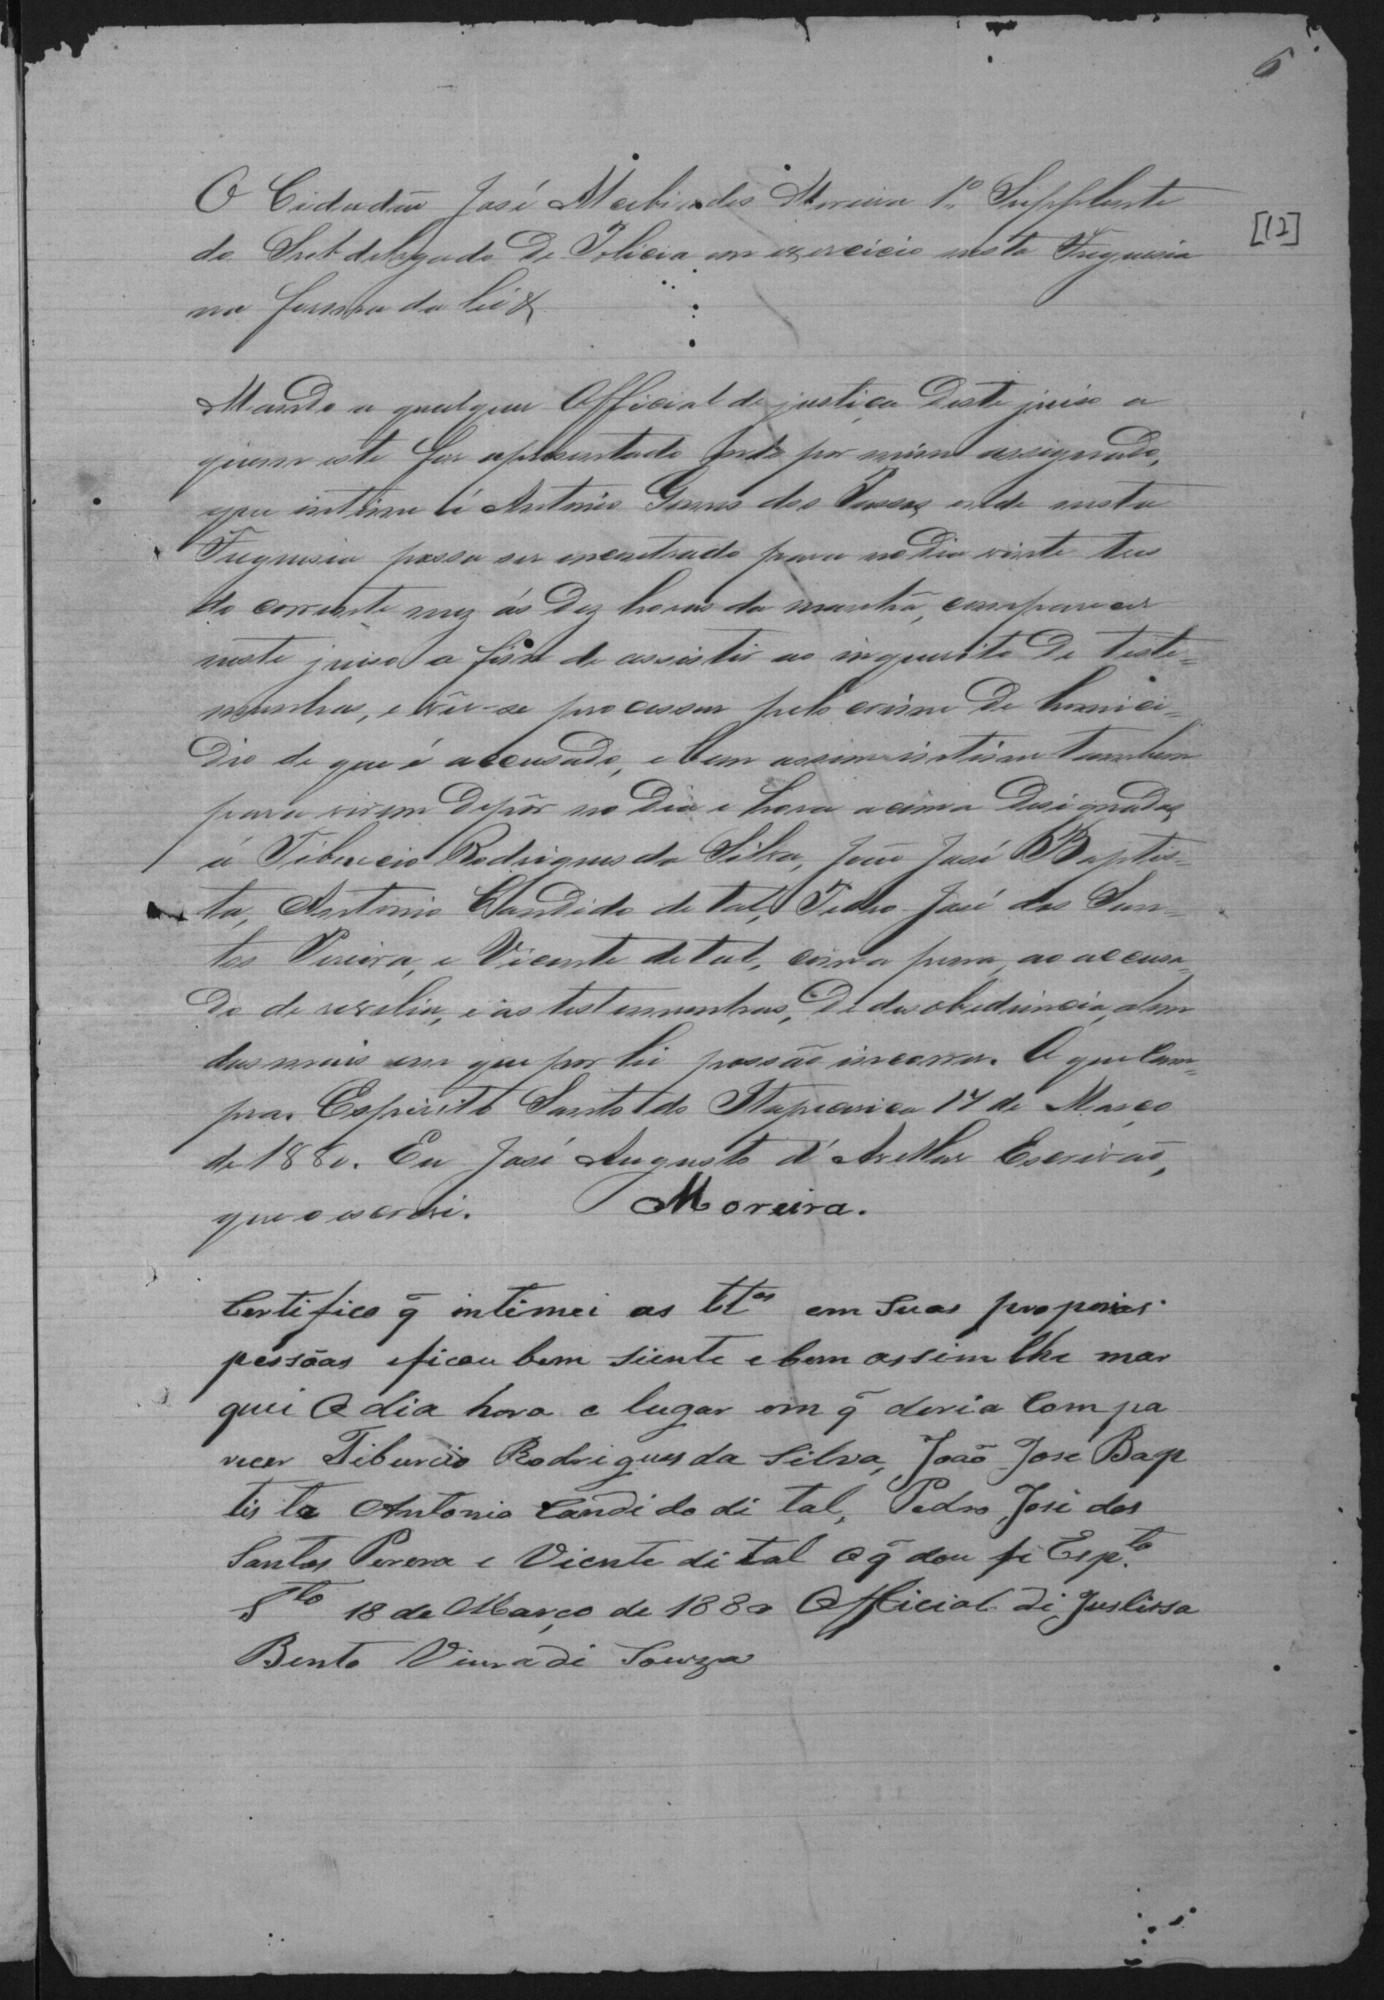 6
[12]
O Cidadão José Alcebiades Moreira 1º Supplente
do Subdelegado de Policia em exercicio nesta Freguesia
na forma da lei &
Mando a qualquer Official de justiça deste juiso a
quem este for apresentado indo por mim assignado,
que intime á Antonio Gomes dos Passos onde nesta
Freguesia possa ser encontrado para no dia vinte tres
do corrente mez ás dez horas da manhã, comparecer
neste juiso a fim de assistir ao inquerito de teste=
munhas, e vêr-se processar pelo crime de homici=
dio de que é accusado, e bem assim intime tambem
para virem depôr no dia e hora acima designados
á Tiburcio Rodrigues da Silva, João José Baptis=
ta, Antonio Candido de tal, Pedro José dos San=
tos Pereira, e Vicente de tal, com a pena, ao accusa=
do de revelia, e ás testemunhas, de desobediencia, alem
das mais em que por lei possão incorrer. O que Cum=
pra. Espirito Santo do Itapecerica 17 de Março
de 1880. Eu José Augusto d'Avellar Escrivão,
que o escrevi. Moreira.
Certifico q̃ intimei as ttas em suas proprias
pessôas eficou bem siente e bem assim lhe mar
quei O dia hora e lugar em q̃ deria Compa
recer Tiburcio Rodrigues da Silva, João Jose Bap
tis ta Antonio Candido di tal, Pedro José dos
Santos Perera e Vicente di tal O q̃ dou fé Esp.to
Sto 18 de Março de 1880 Official di Justissa
Bento Vieira di Souza